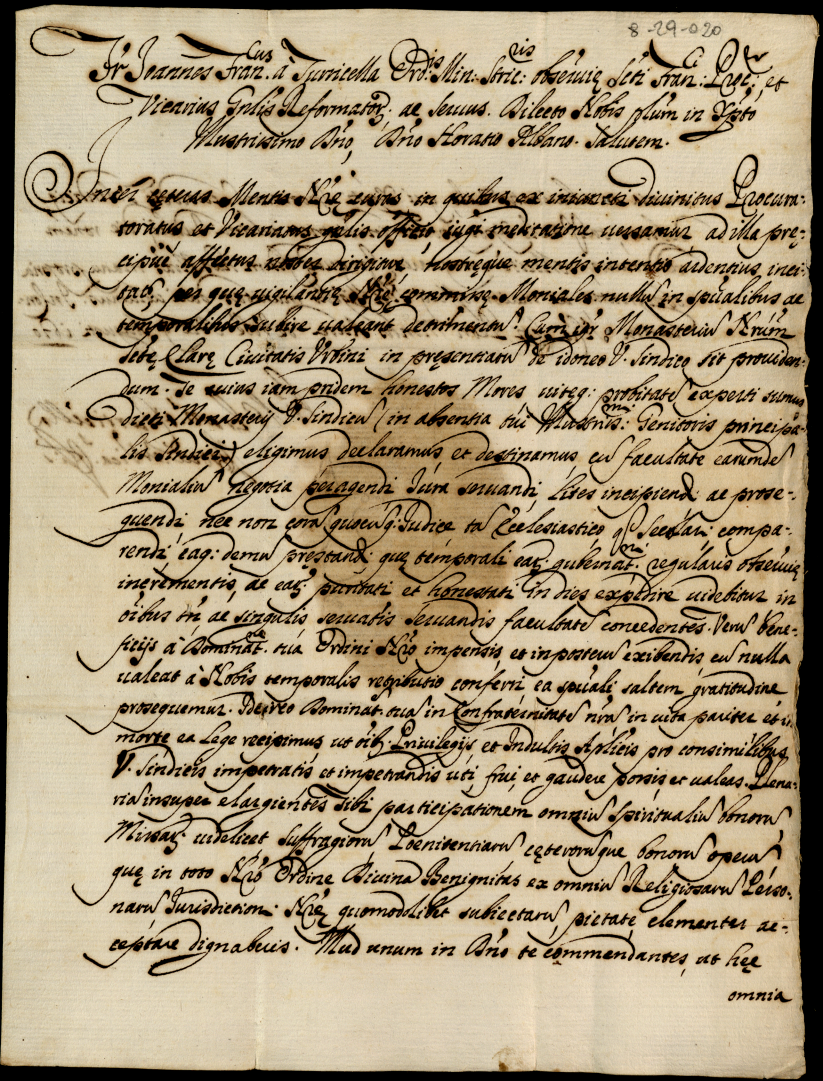 8-29-020
Fr Joannes Fran.cus à Turricella Ord.is Min: Stric: obseruię Scti Fran:ci Proc:r et
Vicarius Gnlis Reformator: ac seruus. Dilecto Nobis plm in Xpto
Illustrissimo Dno, Dno Horatio Albano. Salutem.
Inter cęteras Mentis Nrę curas in quibus ex iniuncti diuinitus Procura-
toratus et Vicariatus gnlis officio iugi meditatione uersamur ad illa prę-
cipuè affectus noster dirigitur, nostręque mentis intentio ardentius inci-
tat, per quę uigilantię Nrę commissę Moniales nullu in spualibus ac
temporalibus subire ualeant detrimentu. Cum igr Monasteriu Nrum
Sctę Clarę Ciuitatis Vrbini in pręsentiaru de idoneo V. Sindico sit prouiden-
dum. Te cuius iam pridem honestos Mores uitęq: probitate experti sumus
dicti Monasterij V. Sindicu (in absentia tui Illustris:mi Genitoris principa-
lis Sindici) eligimus declaramus et destinamus cu facultate earumde
Monialiu negotia peragendi Iura seruandi, Lites incipiend: ac prose-
quendi nec non cora quocuq: Iudice ta Ecclesiastico q Secŭlari compa-
rendi, eaq: demu pręstand: quę temporali eaR gubernat:ni regularis obseruię
incrementis, ac eaR puritati et honestati in dies expedire uidebitur in
oibus tn ac singulis seruatis seruandis facultate concedentes. Veru bene-
ficijs à Dominat.ne tua Ordini Nro impensis et inposteru exibendis cu nulla
ualeat à Nobis temporalis retributio conferri ea spuali saltem gratitudine
prosequemur. Idcirco Dominat. tua in Confraternitate nra in uita pariter et in
morte ea Lege recipimus ut oib: Priuilegijs et Indultis Aplicis pro consimilibus
V. Sindicis impetratis et impetrandis uti, frui, et gaudere possis et ualeas. Plena-
ria insuper elargientes Tibi participationem omniu Spiritualiu bonoru
MissaR uidelicet suffragioru Poenitentiaru cęterorusque bonoru operu
quę in toto Nro Ordine Diuina Benignitas ex omniu Religiosaru Perso-
naru Iurisdiction: Nrę quomodolibet subiectaru, pietate clementer ac-
ceptare dignaberis. Illud unum in Dno te commendantes, ut hęc
omnia